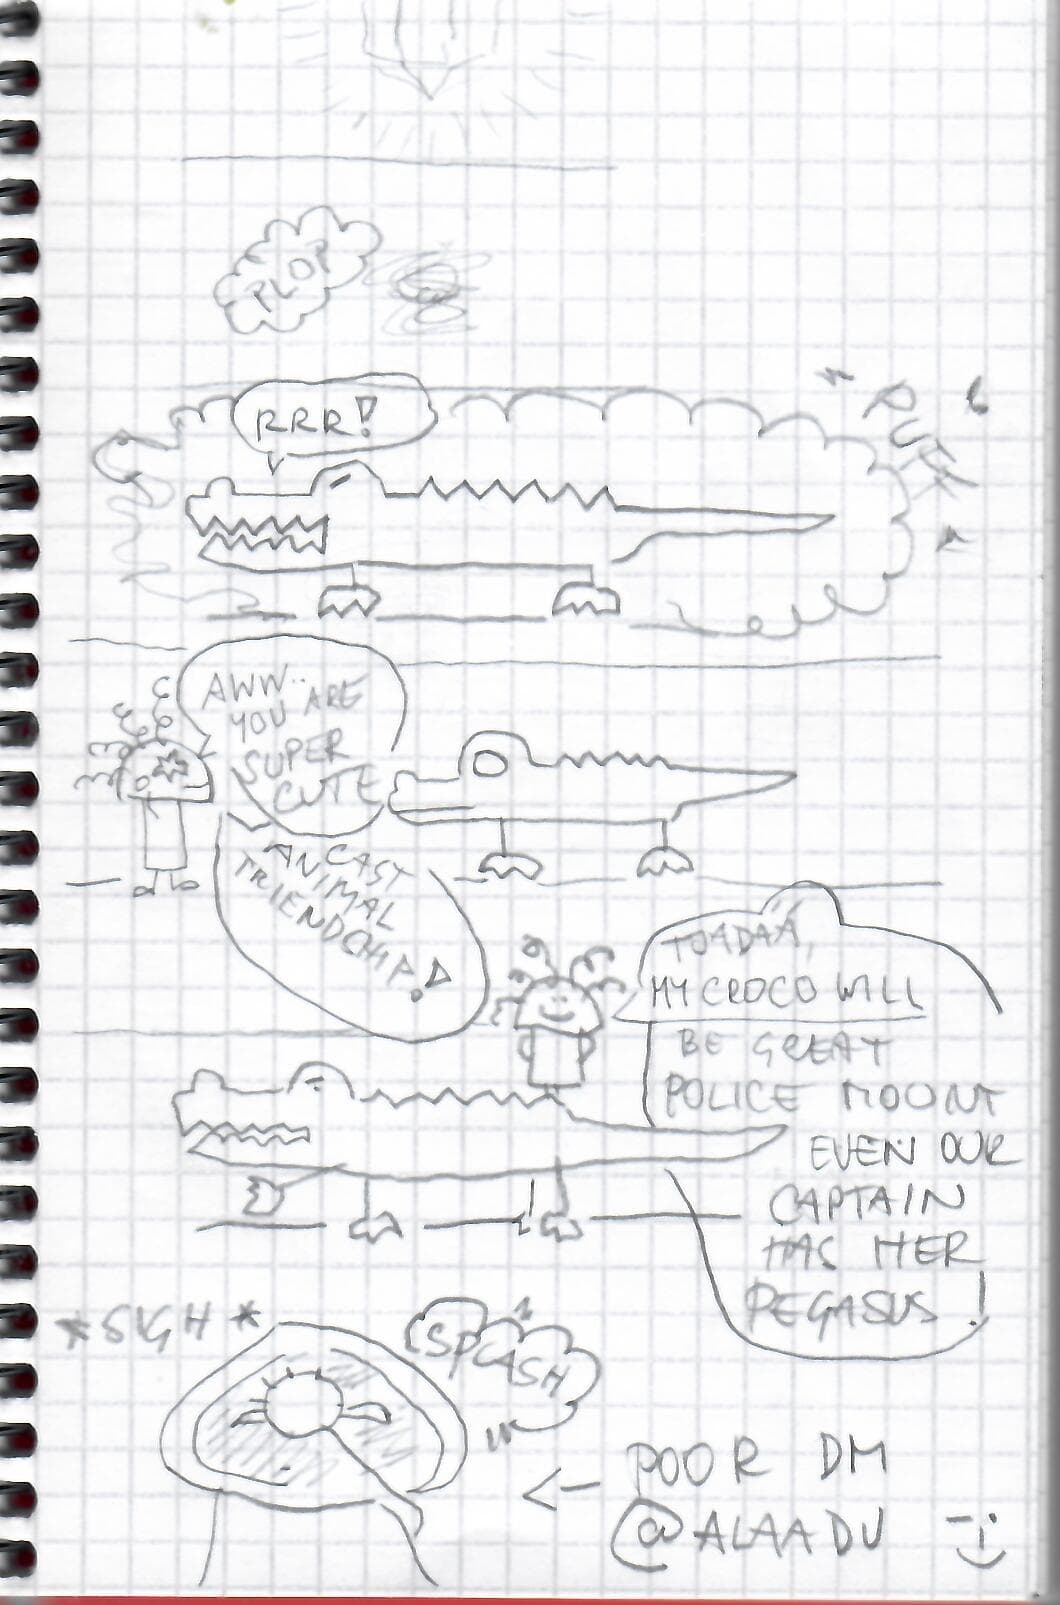 PLOP
RRR!
PUFF
AWW..
YOU ARE
SUPER
CUTE
CAST
ANIMAL
FRIENDSHIP!
TOADAA,
MY CROCO WILL
BE GREAT
POLICE MOUNT
EVEN OUR
CAPTAIN
HAS HER
PEGASUS!
*SIGH*
SPLASH
POOR DM
@ALAADU